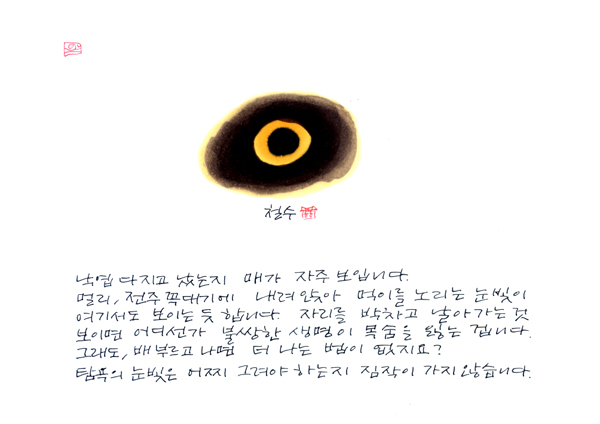 철수
낙엽 다지고 났는지 매가 자주 보입니다.
멀리, 전주 꼭대기에 내려 앉아 먹이를 노리는 눈빛이
여기서도 보이는 듯 합니다. 자리를 박차고 날아가는 것
보이면 어디선가 불쌍한 생명이 목숨을 잃는 겁니다.
그래도, 배부르고 나면 더 나는 법이 없지요?
탐욕의 눈빛은 어찌 그려야 하는지 짐작이 가지 않습니다.